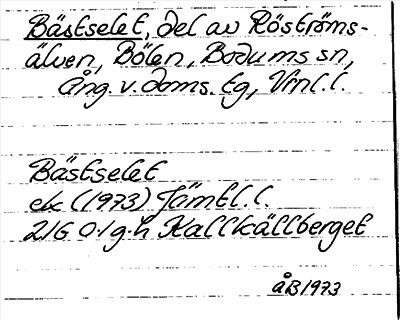 Bästselet, del av Röströms-
älven, Bölen, Bodums sn,
Ång. v. doms. tg, Vnl. l.
Bästselet
ek (1973) Jämtl. l.
21G 0-1 g-h Kallkällberget
åB 1973